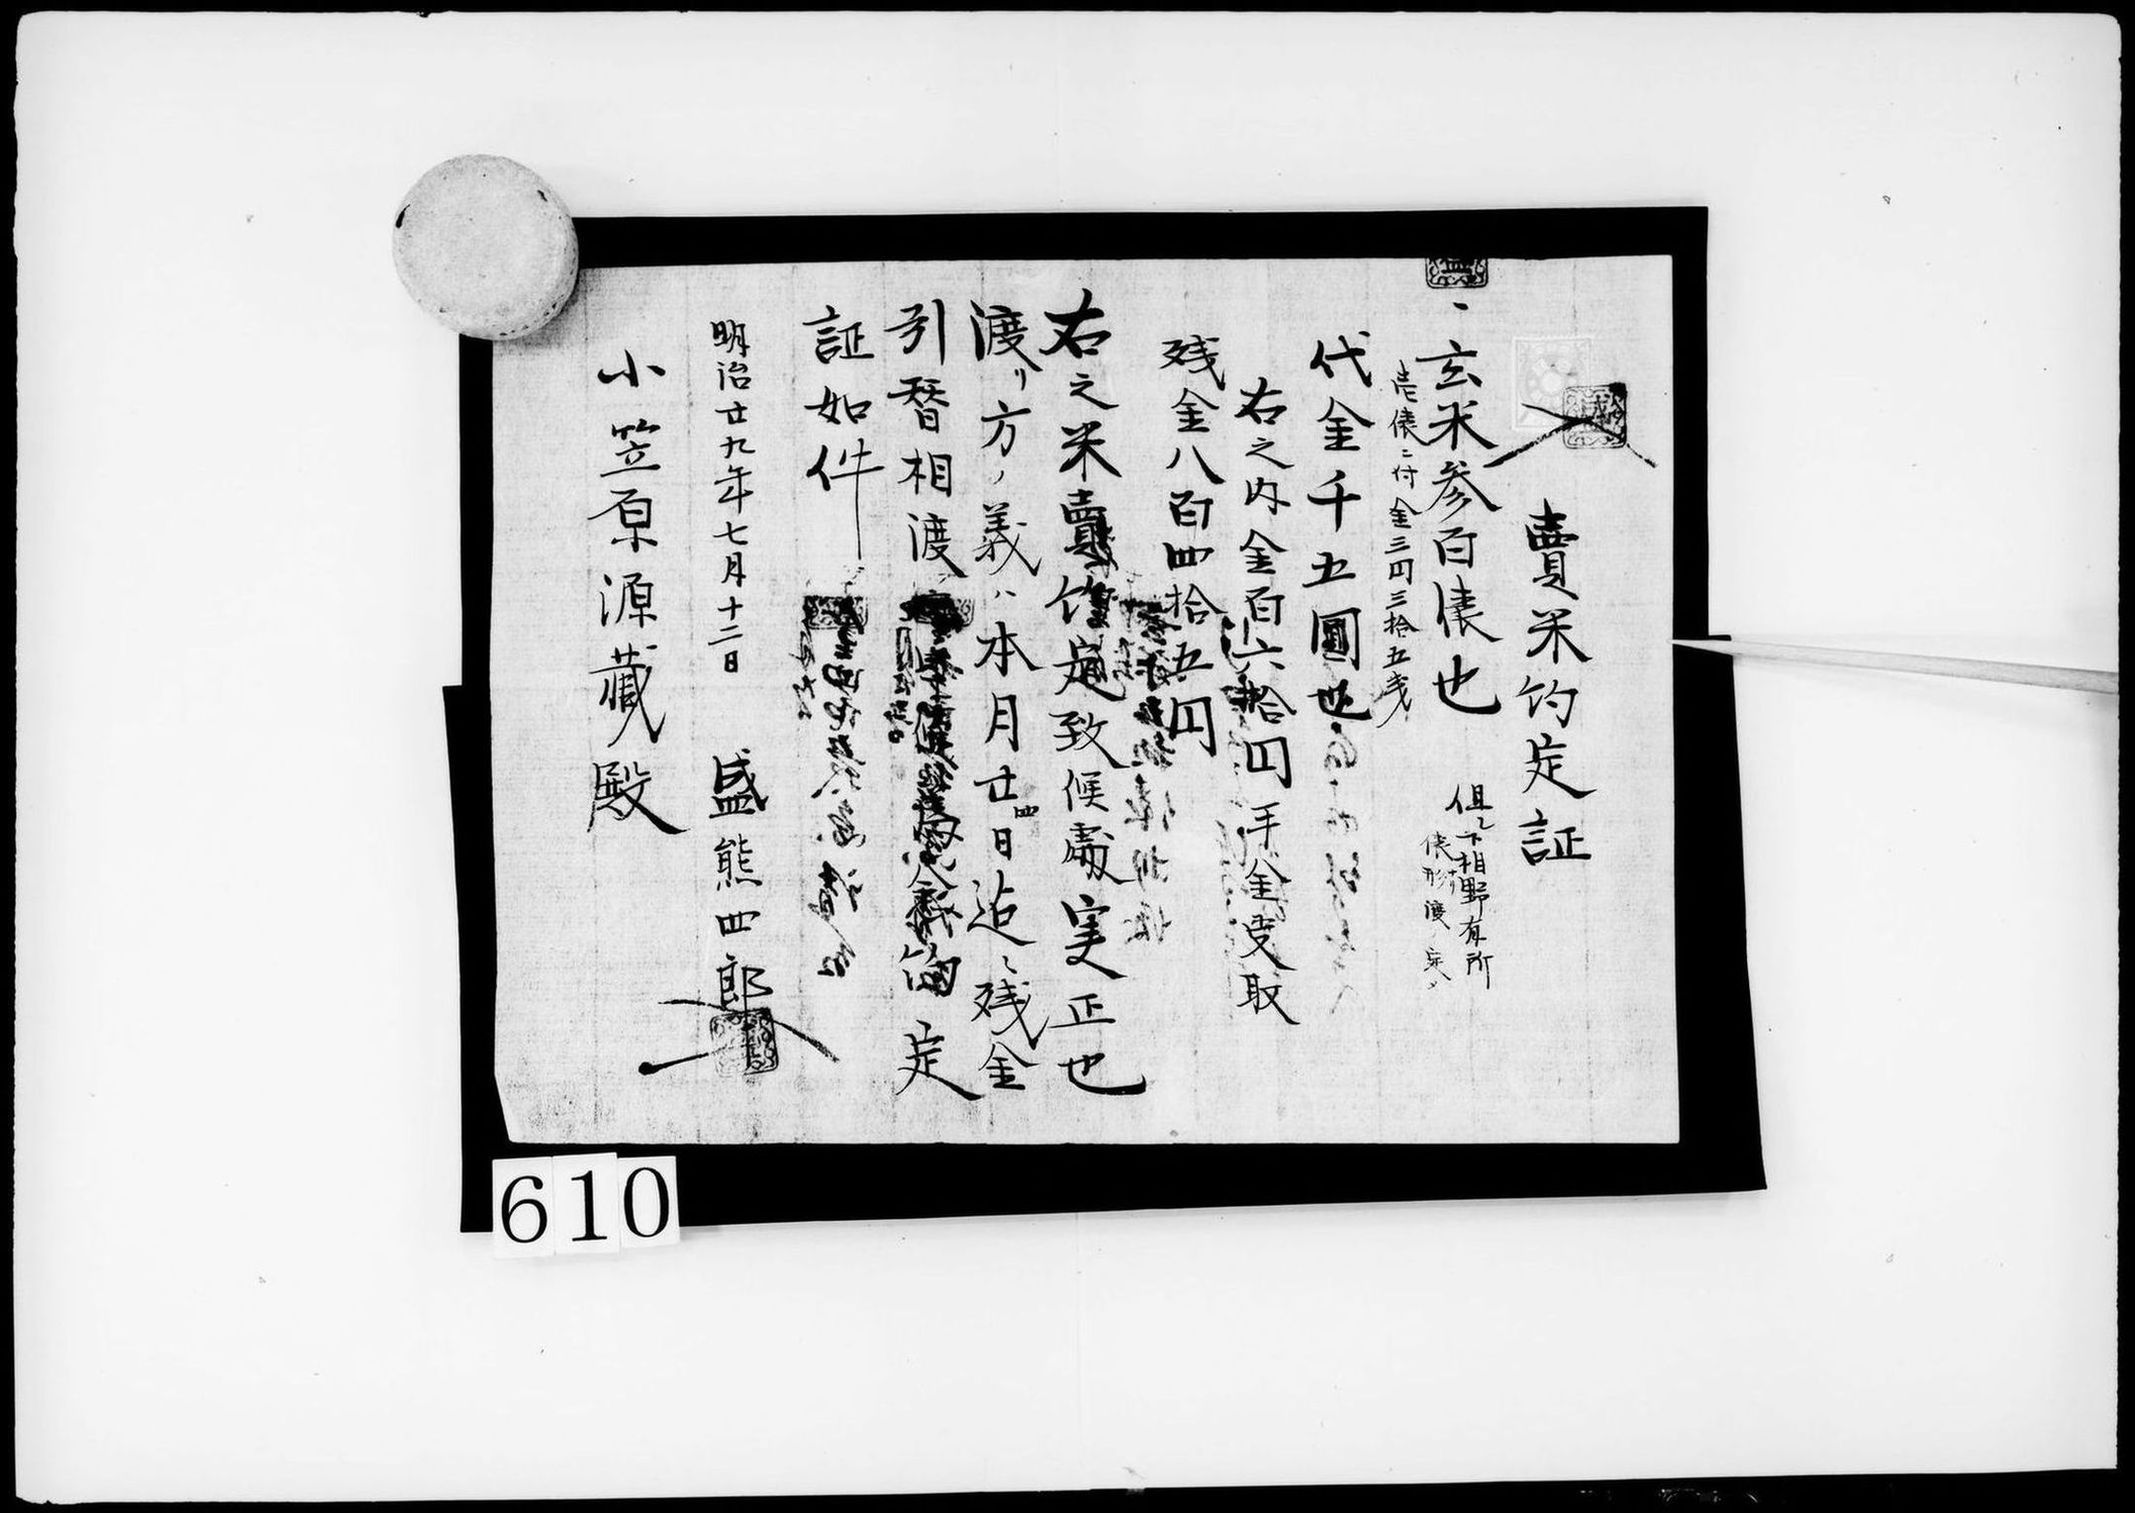 賣米約定証
一玄米参百俵也
但シ下相野有所
俵形渡定メ
壱俵ニ付金三円三拾五戋
代金千五圓也
右之内金百六拾円手金受取
残金八百四拾五円
右之米賣約定致候處実正也
渡リ方ノ義ハ本月廿四日迠ニ残金
引替相渡
約定
証如件
明治廿九年七月十二日
盛熊四郎
小笠原源藏殿
610